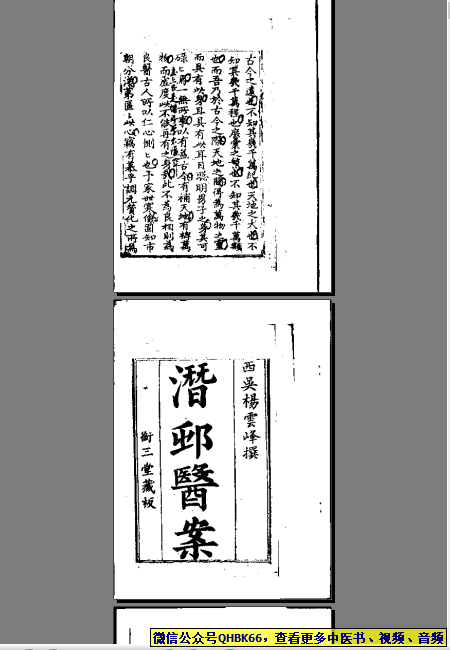 古今之遠也不知其幾千萬紀也天地之大也不
知其幾千萬程也之也不知其幾千萬類
也而吾乃於古今之際天地之間得為萬物之靈
而具有此身且具有此耳目聰明男子也其可
碌碌一無所事以有益古今有補天地有裨萬
物而虛度此不能再有之身哉此不為良相則為
良醫古人所以仁心惻惻也予家世寒儉固知市
朝分區區此心竊有慕乎調元贊化之所為
西吳楊雲峰撰
潛邨醫案
三堂藏板
微信公众号QHBK66，查看更多中医书、视频、音频